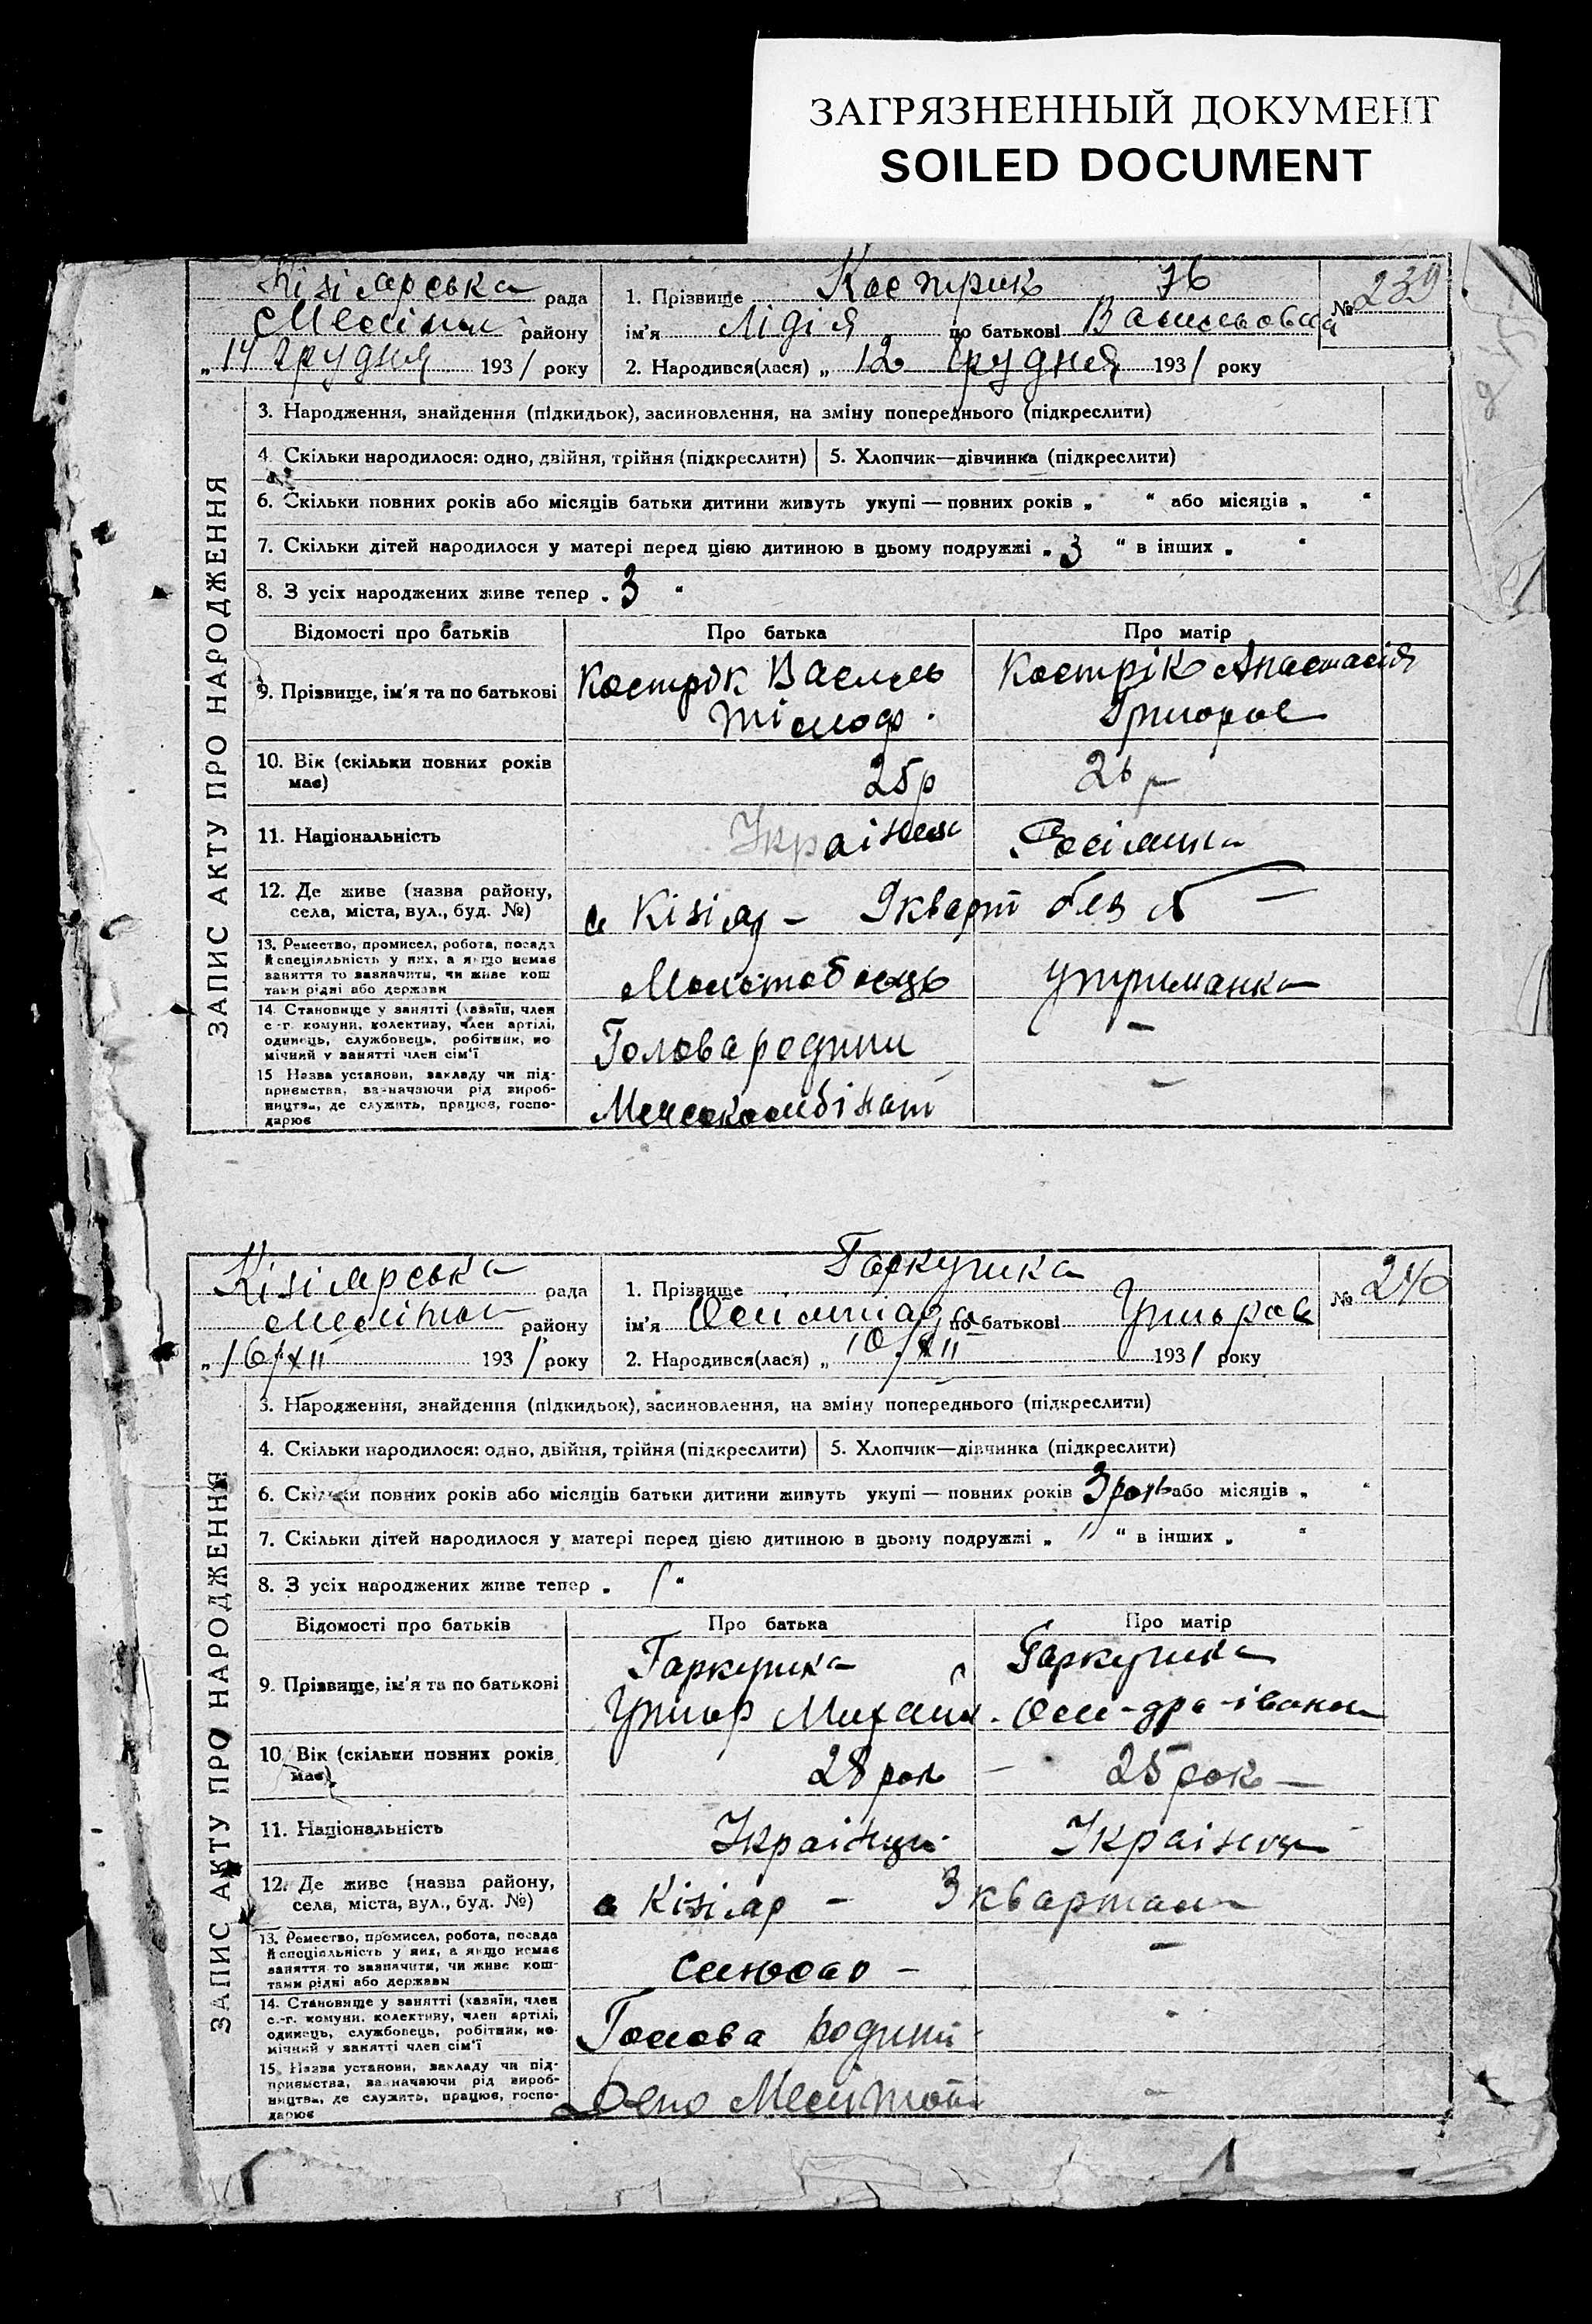 ЗАГРЯЗНЕННЫЙ ДОКУМЕНТ
SOILED DOCUMENT
Кізілярська рада
Меліт району
„14 грудня 1931 року
1. Прізвище Кострик
ім'я Лідія по батькові Васильовна
2. Народився(лася) „ 12 грудня 1931 року
№ 239
ЗАПИС АКТУ ПРО НАРОДЖЕННЯ
3. Народження, знайдення (підкидьок), засиновлення, на зміну попереднього (підкреслити)
4. Скільки народилося: одно, двійня, трійня (підкреслити) 5. Хлопчик—дівчинка (підкреслити)
6. Скільки повних років або місяців батьки дитини живуть укупі — повних років „ “ або місяців „ “
7. Скільки дітей народилося у матері перед цією дитиною в цьому подружжі „ 3 “ в інших „ “
8. З усіх народжених живе тепер „ 3 “
Відомості про батьків Про батька Про матір
9. Прізвище, ім'я та по батькові Кострік Василь Кострік Анастасія
Тімоф. Григоров
10. Вік (скільки повних років
має) 25р 26р
11. Національність Україн
12. Де живе (назва району,
села, міста, вул., буд. №) с Кізіляр – 9 кварт
13. Ремество, промисел, робота, посада
й спеціяльність у них, а якщо немає
заняття то зазначити, чи живе кош
тами рідні або держави
утриманка
14. Становище у занятті (хазяїн, член
с.-г. комуни, колективу, член артілі,
одинець, службовець, робітник, по
мічний у занятті член сім'ї
Голова родини –
15 Назва установи, закладу чи під-
приємства, зазначаючи рід вироб-
ництва, де служить, працює, госпо-
дарює
–
Кізілярська рада
Меліто району
„16/XII 1931 року
1. Прізвище Гаркушка
ім'я Олімпіада по батькові Григоров
2. Народився(лася) „ 10/XII 1931 року
№ 240
ЗАПИС АКТУ ПРО НАРОДЖЕННЯ
3. Народження, знайдення (підкидьок), засиновлення, на зміну попереднього (підкреслити)
4. Скільки народилося: одно, двійня, трійня (підкреслити) 5. Хлопчик—дівчинка (підкреслити)
6. Скільки повних років або місяців батьки дитини живуть укупі — повних років 3 рок або місяців „ “
7. Скільки дітей народилося у матері перед цією дитиною в цьому подружжі „ “ в інших „ “
8. З усіх народжених живе тепер „ 1 “
Відомості про батьків Про батька Про матір
9. Прізвище, ім'я та по батькові Гаркушка Гаркушка
Григор Михайл. Олександра Іванов
10. Вік (скільки повних років
має) 28 рок – 25 рок –
11. Національність Українц Українка
12. Де живе (назва району,
села, міста, вул., буд. №) с Кізіляр – 3 квартал
13. Ремество, промисел, робота, посада
й спеціяльність у них, а якщо немає
заняття то зазначити, чи живе кош-
тами рідні або держави
Слюсар – –
14. Становище у занятті (хазяїн, член
с.-г. комуни, колективу, член артілі,
одинець, службовець, робітник, по-
мічний у занятті член сім'ї
Голова родини -
15. Назва установи, закладу чи під-
приємства, зазначаючи рід вироб-
ництва, де служить, працює, госпо-
дарює
Депо Мелітопо –